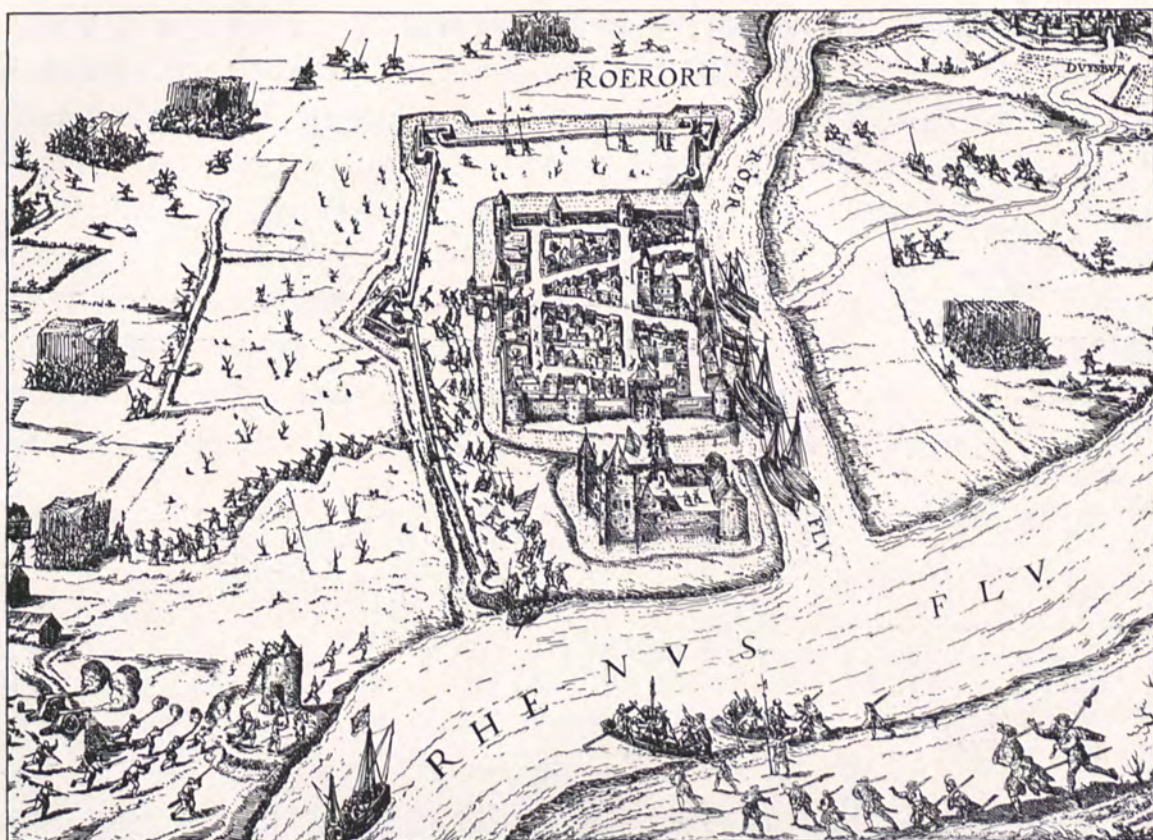 ROERORT
DVYSBVR
ROER
FLV
RHENVS FLV